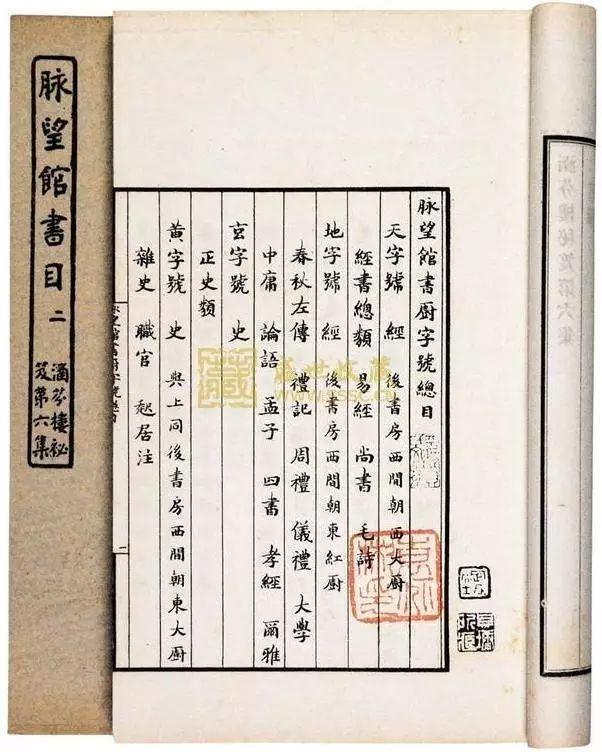 脉望館書目 二
涵芬樓祕
笈第六集
脉望館書廚字號總目
天字號 經 後書房西間朝西大廚
經書總類 易經 尚書 毛詩
地字號 經 後書房西間朝東紅廚
春秋左傳 禮記 周禮 儀禮 大學
中庸 論語 孟子 四書 孝經 爾雅
玄字號 史
正史類
黃字號 史 與上同後書房西間朝東大廚
雜史 職官 起居注
一
涵芬樓秘笈第六集
盛世收藏
WWW.SSSC.CN